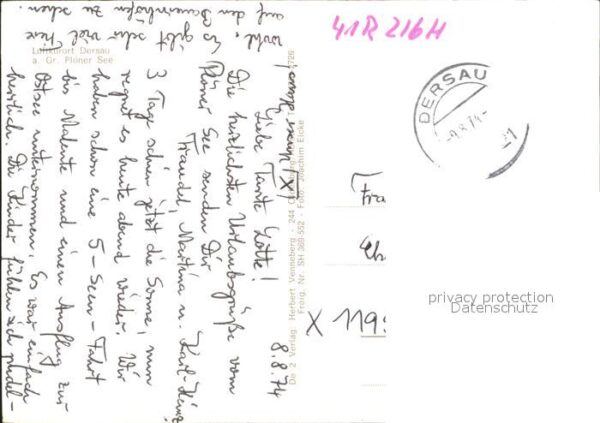 Luftkurort Dersau
a. Gr. Plöner See
8.8.74
Liebe Tante Lotte!
Die herzlichsten Urlaubsgrüße vom
Plöner See senden Dir
Traudel, Martina u. Karl-Heinz
3 Tage schien jetzt die Sonne, nun
regnet es heute abend wieder. Wir
haben schon eine 5-Seen-Fahrt
bis Malente und einen Ausflug zur
Ostsee unternommen. Es war einfach
herrlich. Die Kinder fühlen sich pudel-
wohl. Es gibt sehr viel
auf den Bauernhöfen zu sehen.
De 2 Verlag Herbert Venneberg - 244
Freig. Nr. SH 369-552 - Foto Joachim Eicke
41R 216H
DERSAU
-9.8.74-
21
X 119
privacy protection
Datenschutz